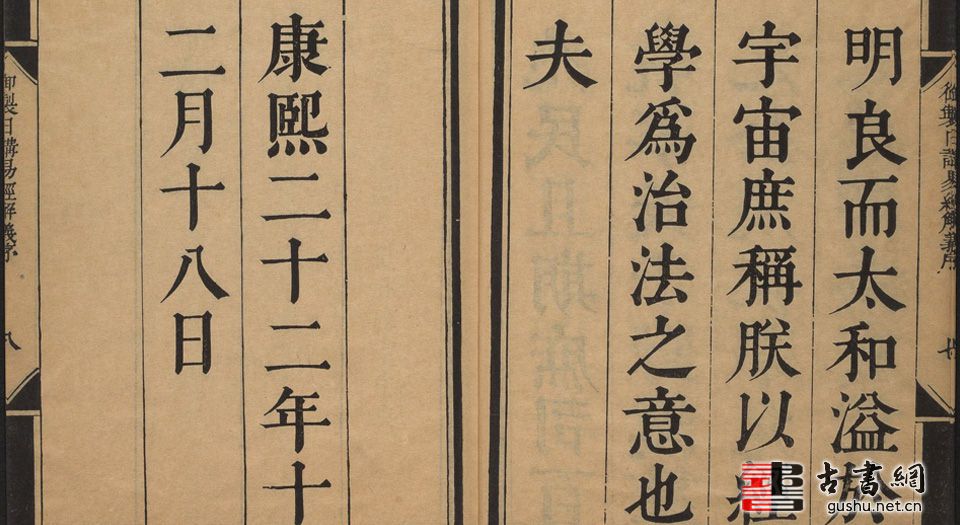 明良而太和溢於
宇宙庶稱朕以經
學爲治法之意也
夫
康熙二十二年十
二月十八日
御製日講易經解義序
七
御製日講易經解義序
八
古書網
gushu.net.cn